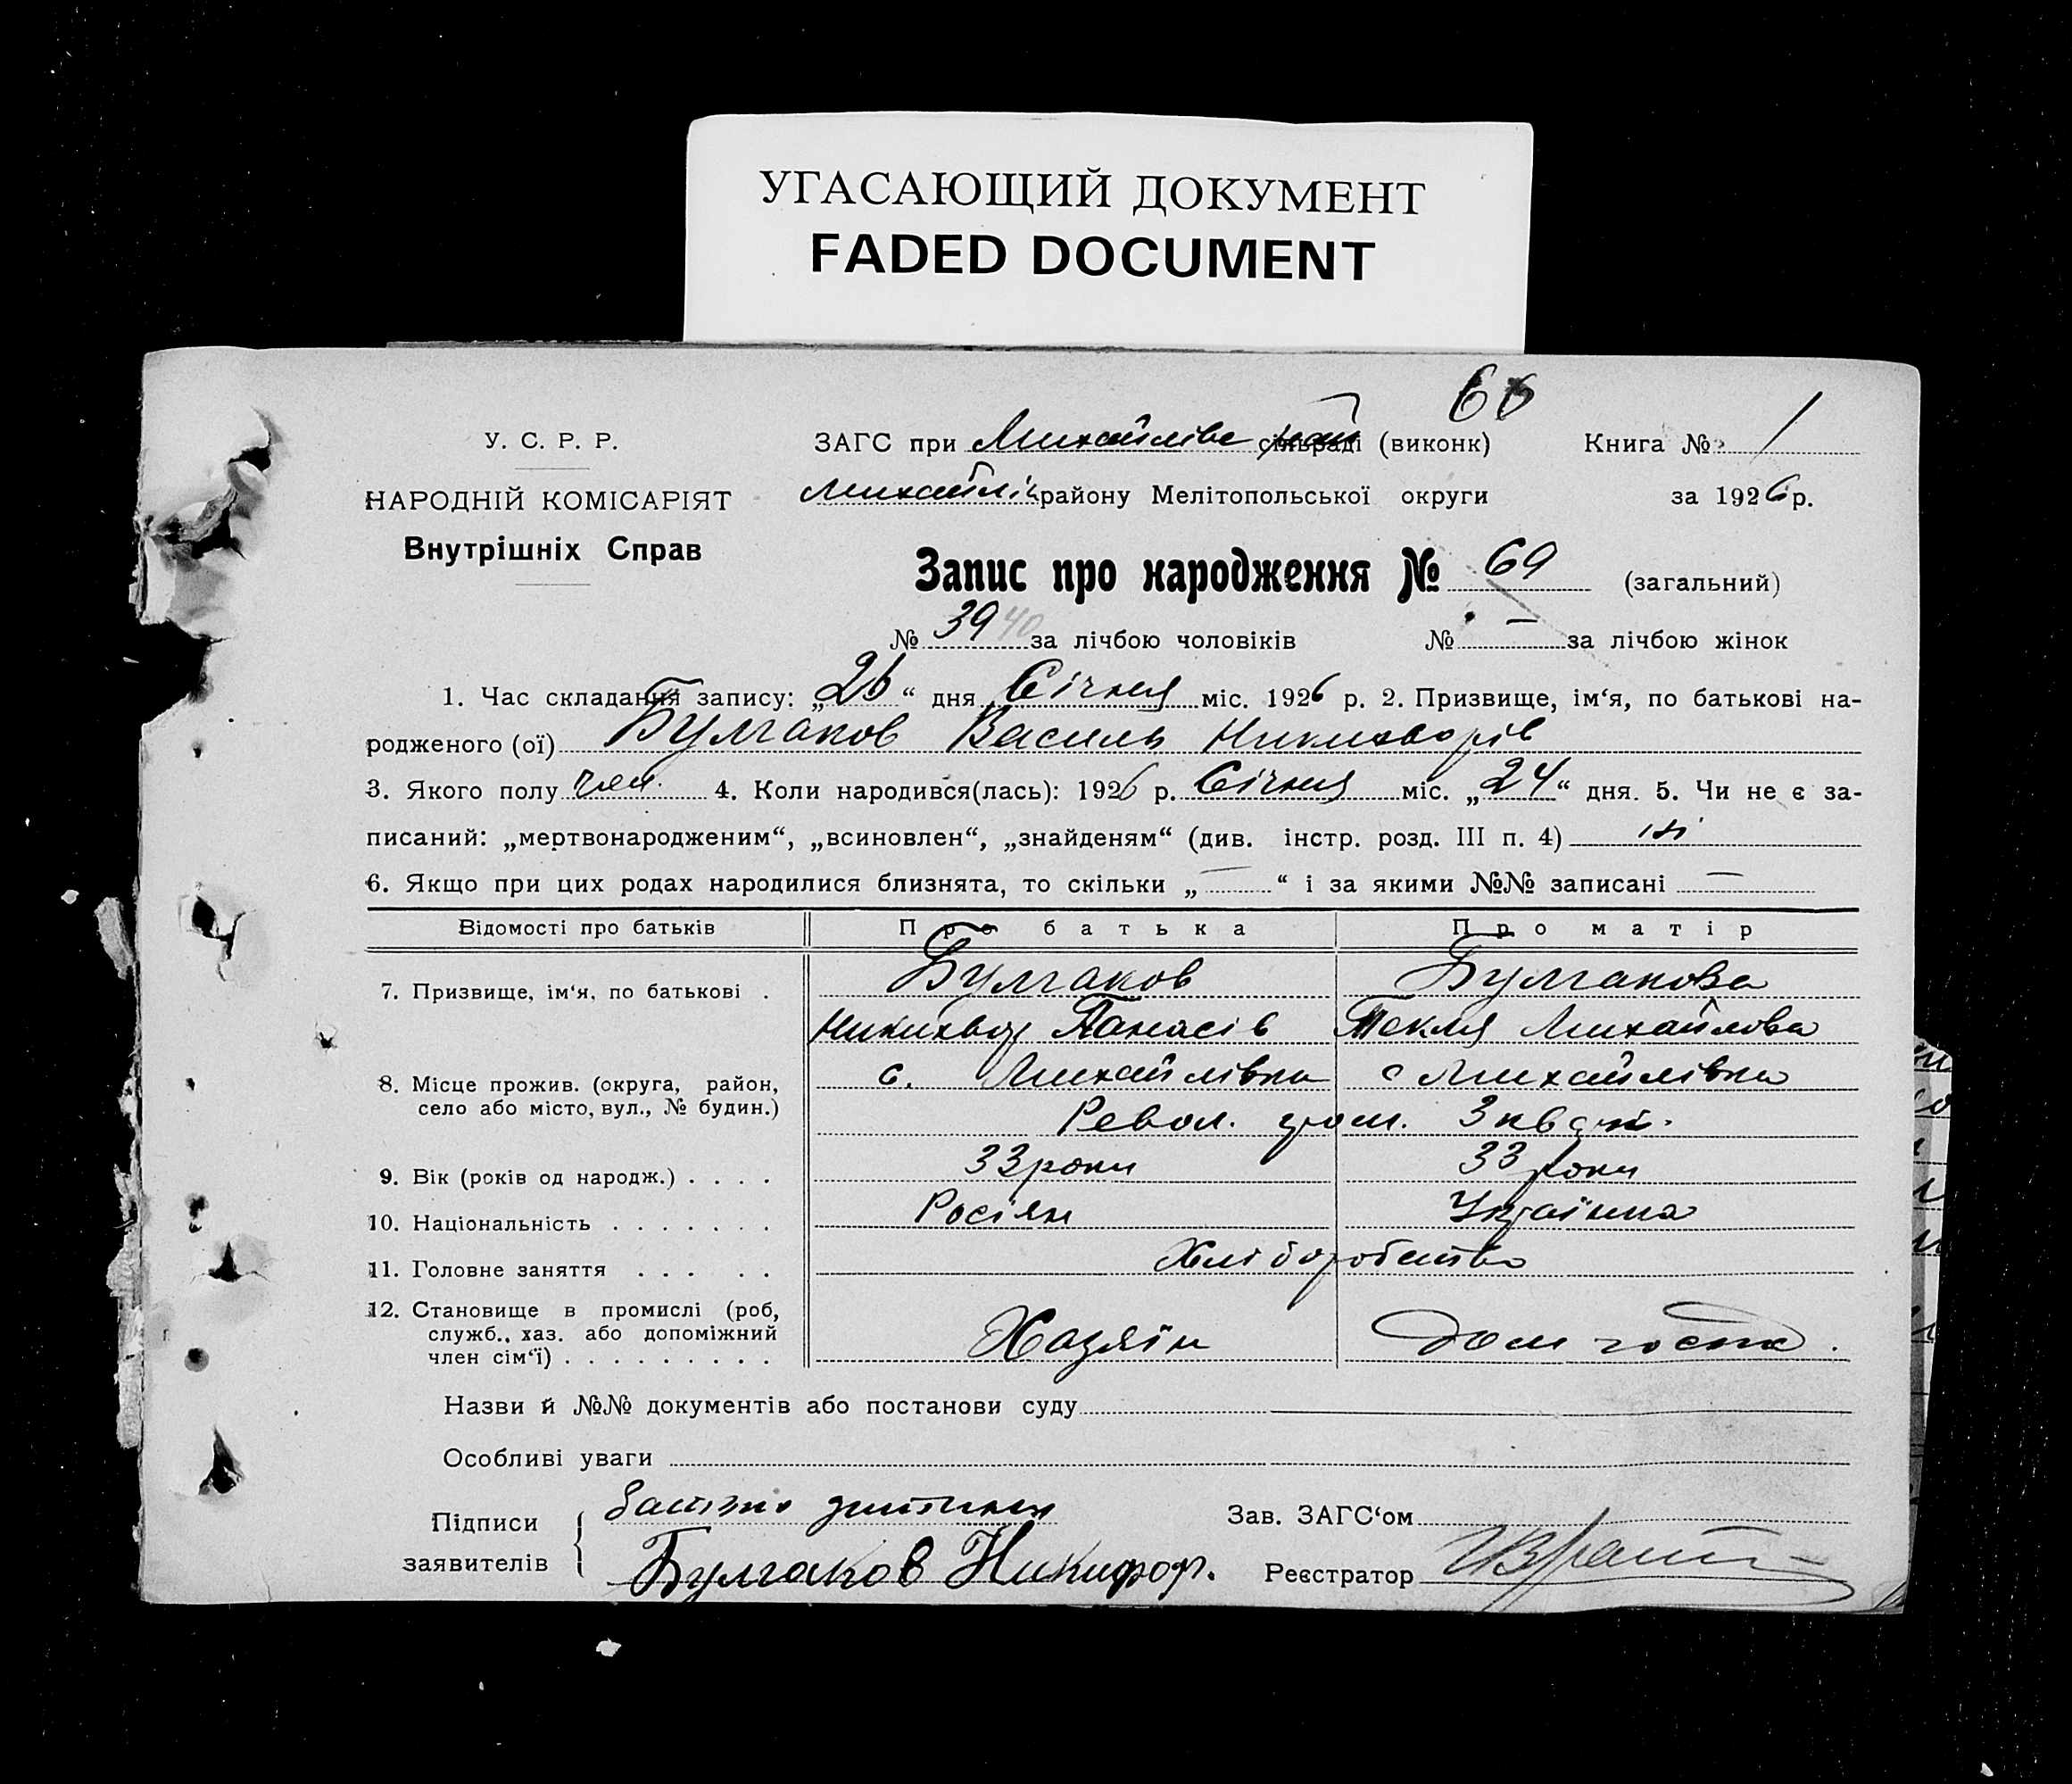 УГАСАЮЩИЙ ДОКУМЕНТ
FADED DOCUMENT
66
У. С. Р. Р.
НАРОДНІЙ КОМІСАРІЯТ
Внутрішніх Справ
ЗАГС при Михайлівс рай сільраді (виконк) Книга № 1
Михайлів району Мелітопольської округи за 1926 р.
Запис про народження № 69 (загальний)
№ 39 40 за лічбою чоловіків № — за лічбою жінок
1. Час складання запису: „26“ дня Січня міс. 1926 р. 2. Призвище, ім‘я, по батькові на-
родженого (ої) Булгаков Василь Никихворів
3. Якого полу чол. 4. Коли народився(лась): 1926 р. Січня міс. „24“ дня. 5. Чи не є за-
писаний: „мертвонародженим“, „всиновлен“, „знайденям“ (див. інстр. розд. III п. 4) ні
6. Якщо при цих родах народилися близнята, то скільки „—“ і за якими №№ записані —
Відомості про батьків Про батька Про матір
7. Призвище, ім‘я, по батькові . Булгаков Булгакова
Никихвор Панасів Текля Михайлова
8. Місце прожив. (округа, район, село або місто, вул., № будин.) с. Михайлівка с Михайлівка
Револ. 3 кварт.
9. Вік (років од народж.) . . . . 33 роки 33 роки
10. Національність . . . . . . . Росіян Українка
11. Головне заняття . . . . . Хліборобство
12. Становище в промислі (роб, служб., хаз. або допоміжний член сім‘ї) . . . . . . . . . Хазяїн Дом госпо.
Назви й №№ документів або постанови суду
Особливі уваги
Підписи заявителів Батько дитини
Булгаков Никифор.
Зав. ЗАГС‘ом
Реєстратор